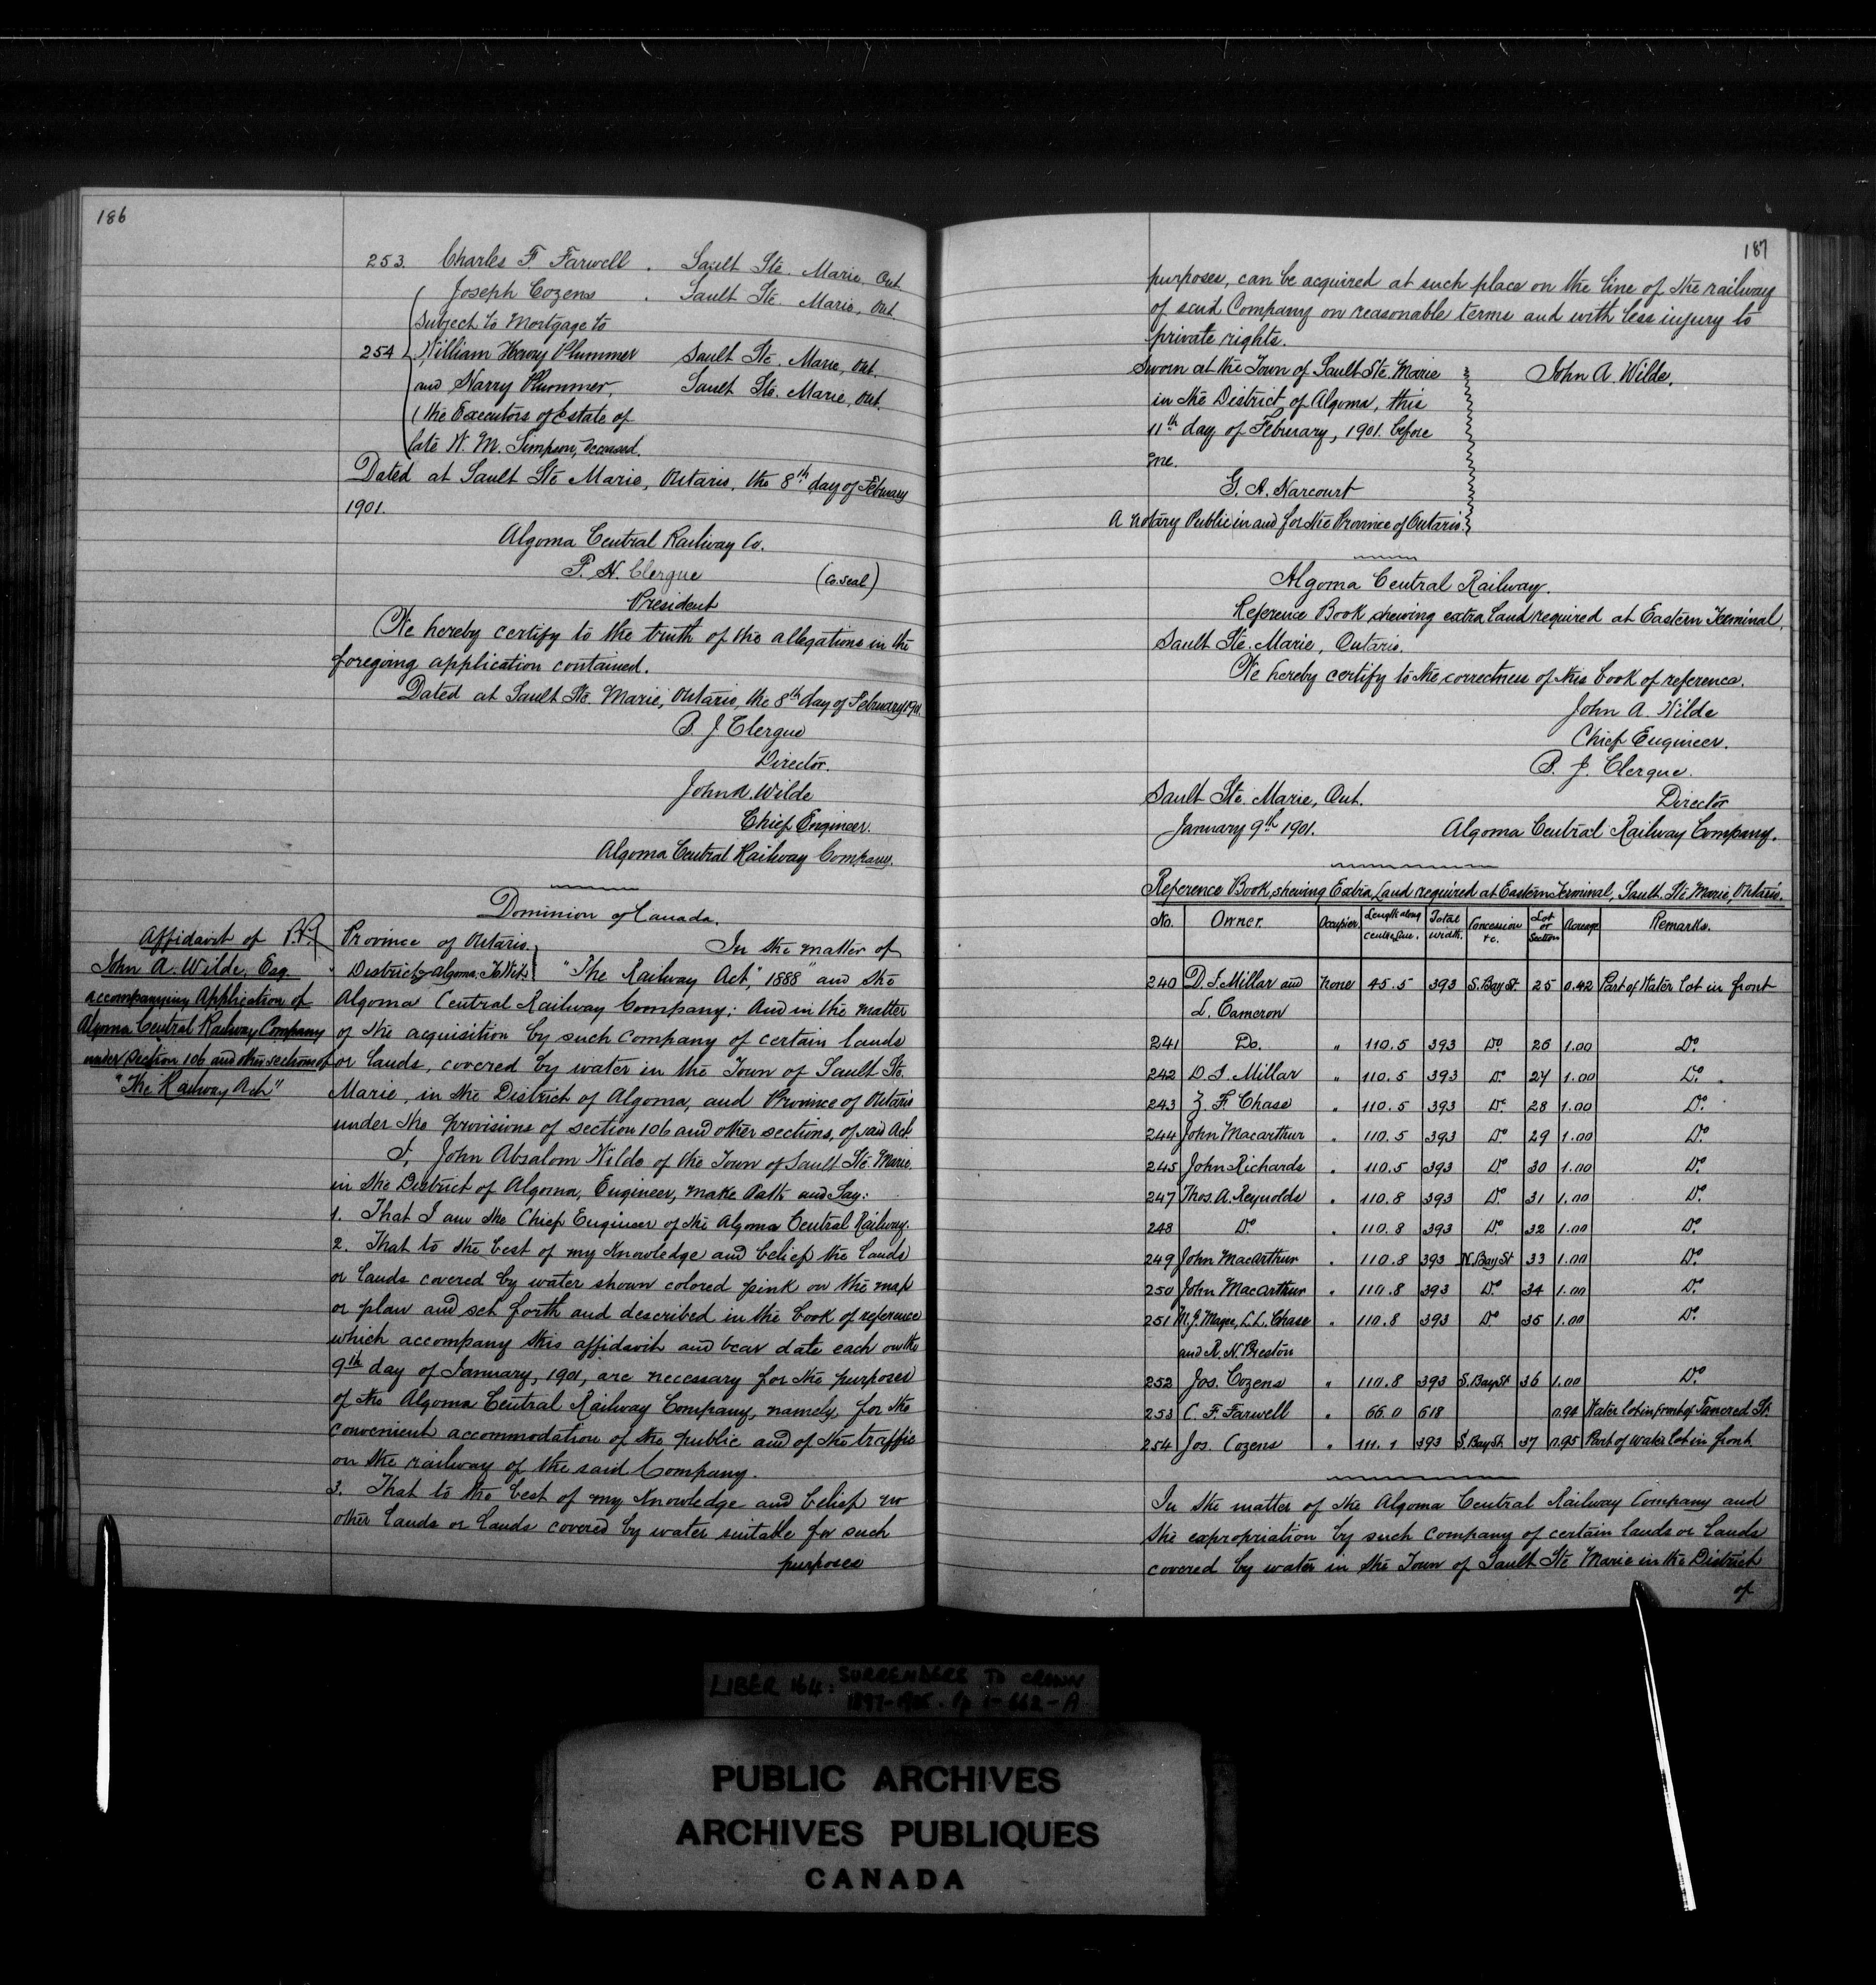 186
253. Charles F. Farwell . Sault Ste. Marie, Ont.
Joseph Cozens . Sault Ste. Marie, Ont.
Subject to Mortgage to
254 William Henry Plummer Sault Ste. Marie, Ont.
and Harry Plummer, Sault Ste. Marie, Ont.
(the Executors of Estate of
late W. M. Simpson, deceased.
Dated at Sault Ste Marie, Ontario, the 8th day of February
1901.
Algoma Central Railway Co.
F. H. Clergue (Co. seal)
President
We hereby certify to the truth of the allegations in the
foregoing application contained.
Dated at Sault Ste. Marie, Ontario, the 8th day of February 1901.
B. J. Clergue
Director.
John A. Wilde
Chief Engineer.
Algoma Central Railway Company.
Dominion of Canada.
Affidavit of
John A. Wilde, Esq
accompanying Application of
Algoma Central Railway Company
under Section 106 and other sections of
"The Railway Act"
Province of Ontario. In the matter of
District of Algoma. To Wit: "The Railway Act," 1888" and the
Algoma Central Railway Company: And in the matter
of the acquisition by such Company of certain lands
or lands, covered by water in the Town of Sault Ste.
Marie, in the District of Algoma, and Province of Ontario
under the provisions of section 106 and other sections, of said Act.
I, John Absalom Wilde of the Town of Sault Ste. Marie.
in the District of Algoma, Engineer, make Oath and Say:
1. That I am the Chief Engineer of the Algoma Central Railway.
2. That to the best of my knowledge and belief the lands
or lands covered by water shown colored pink on the map
or plan and set forth and described in the book of reference
which accompany this affidavit and bear date each on the
9th day of January, 1901, are necessary for the purposes
of the Algoma Central Railway Company, namely, for the
convenient accommodation of the public and of the traffic
on the railway of the said Company.
3. That to the best of my knowledge and belief no
other lands or lands covered by water suitable for such
purposes
187
purposes, can be acquired at such place on the line of the railway
of said Company on reasonable terms and with less injury to
private rights.
Sworn at the Town of Sault Ste. Marie John A. Wilde.
in the District of Algoma, this
11th day of February, 1901. before
me.
G. A. Harcourt
A Notary Public in and for the Province of Ontario.
Algoma Central Railway.
Reference Book, shewing extra land required at Eastern Terminal,
Sault Ste. Marie, Ontario.
We hereby certify to the correctness of this book of reference.
John A. Wilde
Chief Engineer.
B. J. Clergue.
Sault Ste. Marie, Ont. Director
January 9th 1901. Algoma Central Railway Company.
Reference Book, shewing Extra Land required at Eastern Terminal, Sault. Ste. Marie, Ontario.
No. Owner. Occupier Length along centre line. Total width. Concession &c. Lot or Section Acreage Remarks.
240 D. I. Millar and None 45.5 393 S. Bay St. 25 0.42 Part of Water lot in front
L. Cameron
241 Do. " 110.5 393 Do. 26 1.00 Do.
242 D. I. Millar " 110.5 393 Do. 27 1.00 Do.
243 Z. F. Chase " 110.5 393 Do. 28 1.00 Do.
244 John Macarthur " 110.5 393 Do. 29 1.00 Do.
245 John Richards " 110.5 393 Do. 30 1.00 Do.
247 Thos. A. Reynolds " 110.8 393 Do. 31 1.00 Do.
248 Do. " 110.8 393 Do. 32 1.00 Do.
249 John MacArthur " 110.8 393 N. Bay St 33 1.00 Do.
250 John MacArthur " 110.8 393 Do. 34 1.00 Do.
251 M. J. Magee, L. L. Chase " 110.8 393 Do 35 1.00 Do.
and R. H. Preston
252 Jos. Cozens " 110.8 393 S. Bay St 36 1.00 Do
253 C. F. Farwell " 66.0 618 0.94 Water lot in front of Tancred St.
254 Jos. Cozens " 111.1 393 S. Bay St. 37 0.95 Part of water lot in front
In the matter of the Algoma Central Railway Company and
the expropriation by such Company of certain lands or lands
covered by water in the Town of Sault Ste Marie in the District
of
LIBER 164: SURRENDERS TO CROWN
1897-1905. p 1-662-A
PUBLIC ARCHIVES
ARCHIVES PUBLIQUES
CANADA